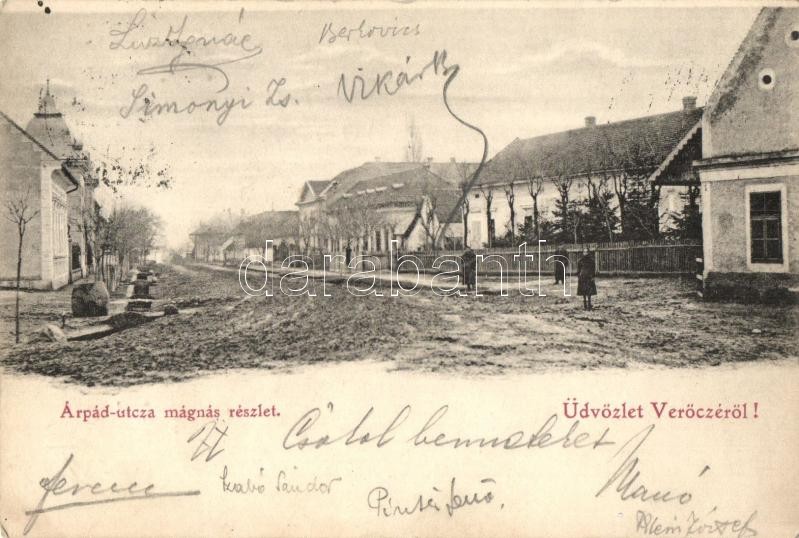 Berkovics
Simonyi Zs.
Vikár B
darabanth
Árpád-utcza mágnás részlet.
Üdvözlet Verőczéről!
Csókol benneteket
Ferencz
Szabó Sándor
Pintér Jenő
Manó
József